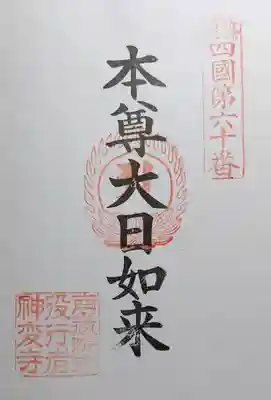 四國第六十番
本尊大日如来
役行者
神変寺